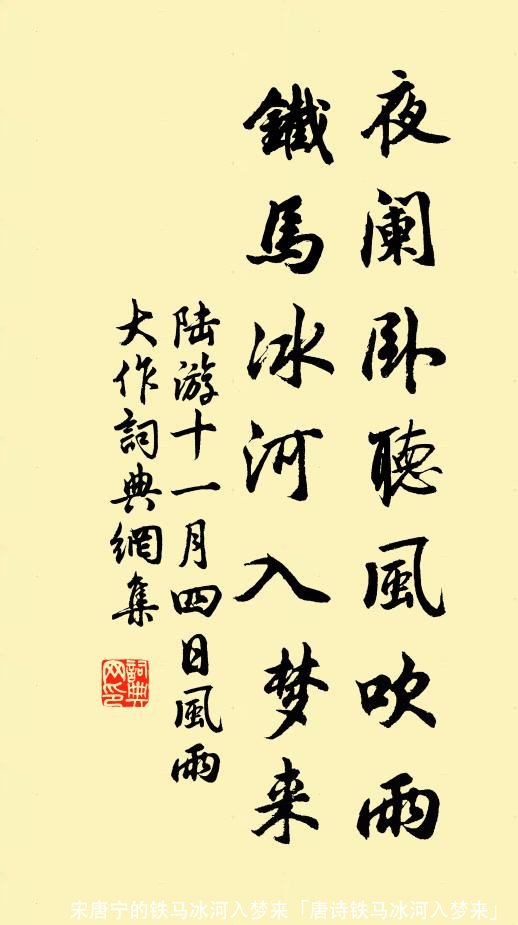 夜阑卧聽風吹雨
鐵馬冰河入梦来
陆游十一月四日風雨
大作詞典網集
詞典网印
宋唐宁的铁马冰河入梦来「唐诗铁马冰河入梦来」